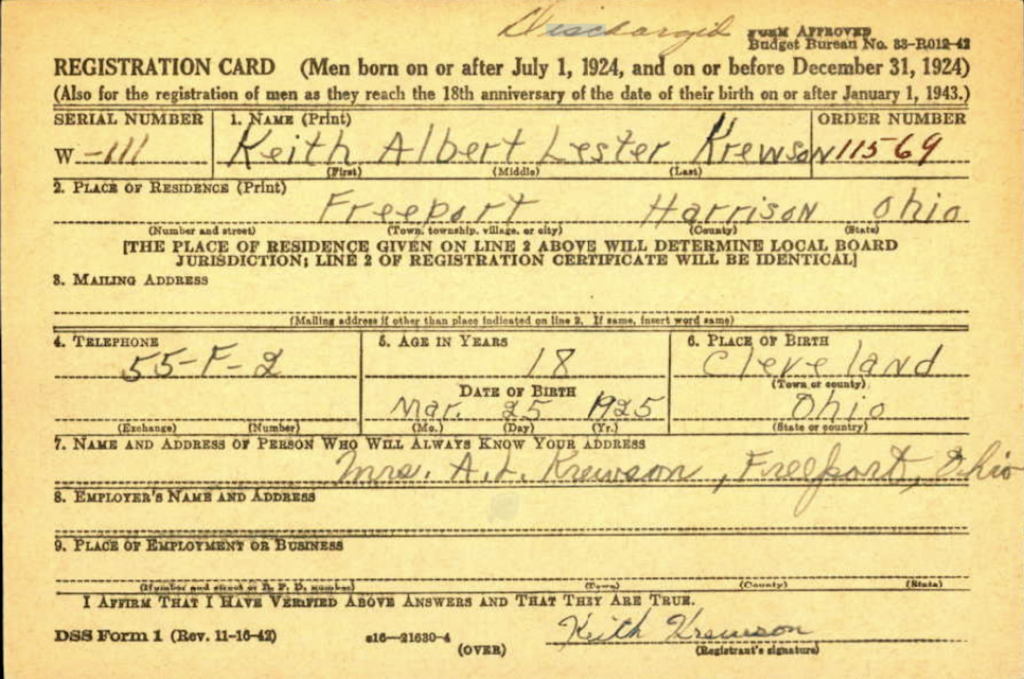 Discharged FORM APPROVED
Budget Bureau No. 33-R012-42
REGISTRATION CARD (Men born on or after July 1, 1924, and on or before December 31, 1924)
(Also for the registration of men as they reach the 18th anniversary of the date of their birth on or after January 1, 1943.)
SERIAL NUMBER 1. NAME (Print) ORDER NUMBER
W -111 Keith Albert Lester Krewson 11569
(First) (Middle) (Last)
2. PLACE OF RESIDENCE (Print)
Freeport Harrison Ohio
(Number and street) (Town, township, village, or city) (County) (State)
[THE PLACE OF RESIDENCE GIVEN ON LINE 2 ABOVE WILL DETERMINE LOCAL BOARD
JURISDICTION; LINE 2 OF REGISTRATION CERTIFICATE WILL BE IDENTICAL]
3. MAILING ADDRESS
(Mailing address if other than place indicated on line 2. If same, insert word same)
4. TELEPHONE 5. AGE IN YEARS 6. PLACE OF BIRTH
55-F-2 18 Cleveland
(Town or county)
DATE OF BIRTH
Mar. 25 1925 Ohio
(Exchange) (Number) (Mo.) (Day) (Yr.) (State or country)
7. NAME AND ADDRESS OF PERSON WHO WILL ALWAYS KNOW YOUR ADDRESS
Mrs. A. L. Krewson, Freeport, Ohio
8. EMPLOYER'S NAME AND ADDRESS
9. PLACE OF EMPLOYMENT OR BUSINESS
(Number and street or R. F. D. number) (Town) (County) (State)
I AFFIRM THAT I HAVE VERIFIED ABOVE ANSWERS AND THAT THEY ARE TRUE.
DSS Form 1 (Rev. 11-16-42) e16—21630-4 Keith Krewson
(OVER) (Registrant's signature)